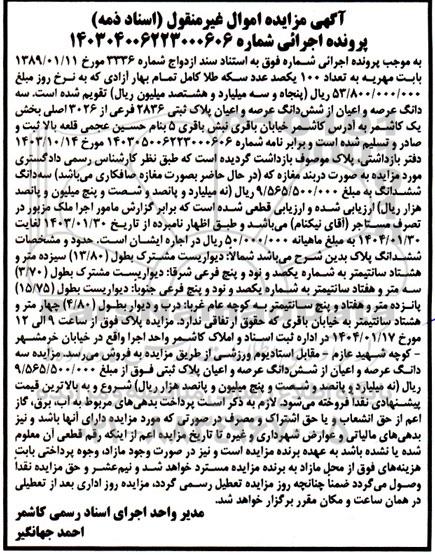 آگهی مزایده اموال غیرمنقول (اسناد ذمه)
پرونده اجرائی شماره ۱۴۰۳۰۴۰۰۶۲۲۳۰۰۰۶۰۶
به موجب پرونده اجرائی شماره فوق به استناد سند ازدواج شماره ۳۳۳۶ مورخ ۱۳۸۹/۰۱/۱۱
بابت مهریه به تعداد ۱۰۰ یکصد عدد سکه طلا کامل تمام بهار آزادی که به نرخ روز مبلغ
۵۳/۸۰۰/۰۰۰/۰۰۰ ریال (پنجاه و سه میلیارد و هشتصد میلیون ریال) تقویم شده است. سه
دانگ عرصه و اعیان از شش‌دانگ عرصه و اعیان پلاک ثبتی ۲۸۳۶ فرعی از ۳۰۲۶ اصلی بخش
یک کاشمر به آدرس کاشمر خیابان باقری نبش باقری ۵ بنام حسین عجمی قلعه بالا ثبت و
صادر و تسلیم شده است و برابر نامه شماره ۱۴۰۳۰۵۰۰۶۲۲۳۰۰۰۶۰۶ مورخ ۱۴۰۳/۱۰/۱۴
دفتر بازداشتی، پلاک موصوف بازداشت گردیده است که طبق نظر کارشناس رسمی دادگستری
مورد مزایده به صورت دربند مغازه که (در حال حاضر بصورت مغازه صافکاری می‌باشد) سه‌دانگ
ششدانگ به مبلغ ۹/۵۶۵/۵۰۰/۰۰۰ ریال (نه میلیارد و پانصد و شصت و پنج میلیون و پانصد
هزار ریال) ارزیابی شده و ارزیابی قطعی شده است که برابر گزارش مامور اجرا ملک مزبور در
تصرف مستاجر (آقای نیکنام) می‌باشد و طبق اظهار نامبرده از تاریخ ۱۴۰۳/۰۱/۳۰ لغایت
۱۴۰۴/۰۱/۳۰ به مبلغ ماهیانه ۵۰/۰۰۰/۰۰۰ ریال در اجاره ایشان است. حدود و مشخصات
ششدانگ پلاک بدین شرح می‌باشد شمالا: دیواریست مشترک بطول (۱۳/۸۰) سیزده متر و
هشتاد سانتیمتر به شماره یکصد و نود و پنج فرعی شرقا: دیواریست مشترک بطول (۳/۷۰)
سه متر و هفتاد سانتیمتر به شماره یکصد و نود و پنج فرعی جنوبا: دیواریست بطول (۱۵/۷۵)
پانزده متر و هفتاد و پنج سانتیمتر به کوچه عام غربا: درب و دیوار بطول (۴/۸۰) چهار متر و
هشتاد سانتیمتر به خیابان باقری که حقوق ارتفاقی ندارد. مزایده پلاک فوق از ساعت ۹ الی ۱۲
مورخ ۱۴۰۴/۰۱/۱۷ در اداره ثبت اسناد و املاک کاشمر واحد اجرا واقع در خیابان خرمشهر
- کوچه شهید عازم ۲ مقابل استادیوم ورزشی از طریق مزایده به فروش می‌رسد. مزایده سه
دانگ عرصه و اعیان از شش‌دانگ عرصه و اعیان پلاک ثبتی فوق از مبلغ ۹/۵۶۵/۵۰۰/۰۰۰
ریال (نه میلیارد و پانصد و شصت و پنج میلیون و پانصد هزار ریال) شروع و به بالاترین قیمت
پیشنهادی نقدا فروخته می‌شود. لازم به ذکر است پرداخت بدهی‌های مربوط به آب، برق، گاز
اعم از حق انشعاب و یا حق اشتراک و مصرف در صورتی که مورد مزایده دارای آنها باشد و نیز
بدهی‌های مالیاتی و عوارض شهرداری و غیره تا تاریخ مزایده اعم از اینکه رقم قطعی آن معلوم
شده یا نشده باشد به عهده برنده مزایده است و نیز در صورت وجود مازاد، وجوه پرداختی بابت
هزینه‌های فوق از محل مازاد به برنده مزایده مسترد خواهد شد و نیم‌عشر و حق مزایده نقدا
وصول می‌گردد ضمناً چنانچه روز مزایده تعطیل رسمی گردد، مزایده روز اداری بعد از تعطیلی
در همان ساعت و مکان مقرر برگزار خواهد شد.
مدیر واحد اجرای اسناد رسمی کاشمر
احمد جهانگیر